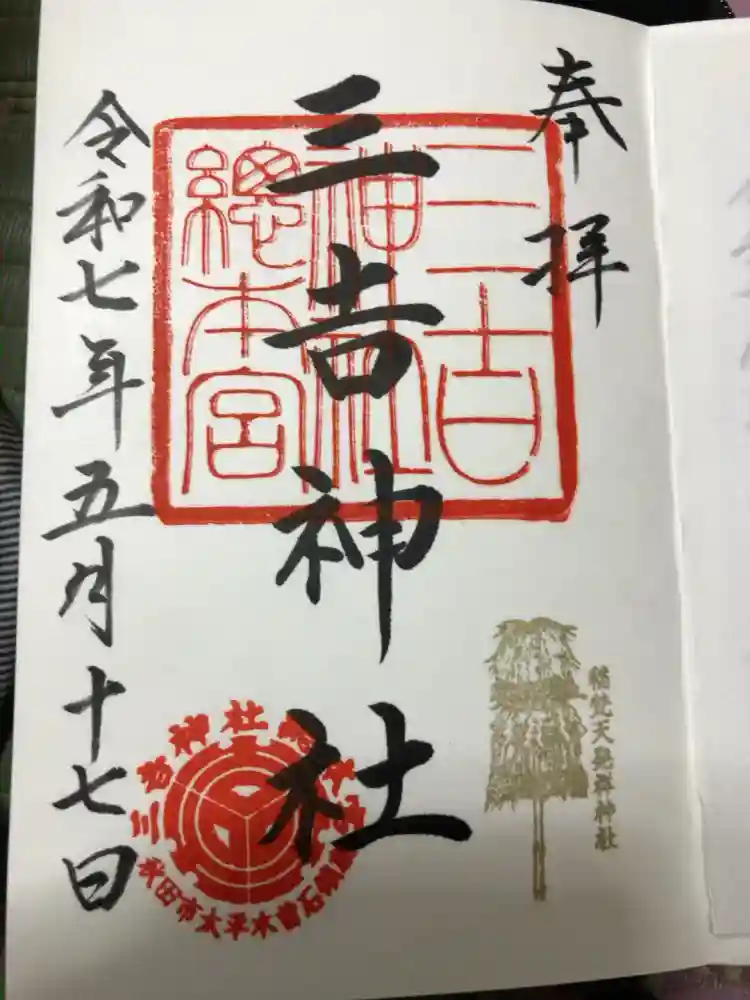 奉拝
三吉
神社
總本宮
三𠮷神社
梵天発祥神社
三吉神社總本宮
秋田市太平木曽石
令和七年五月十七日